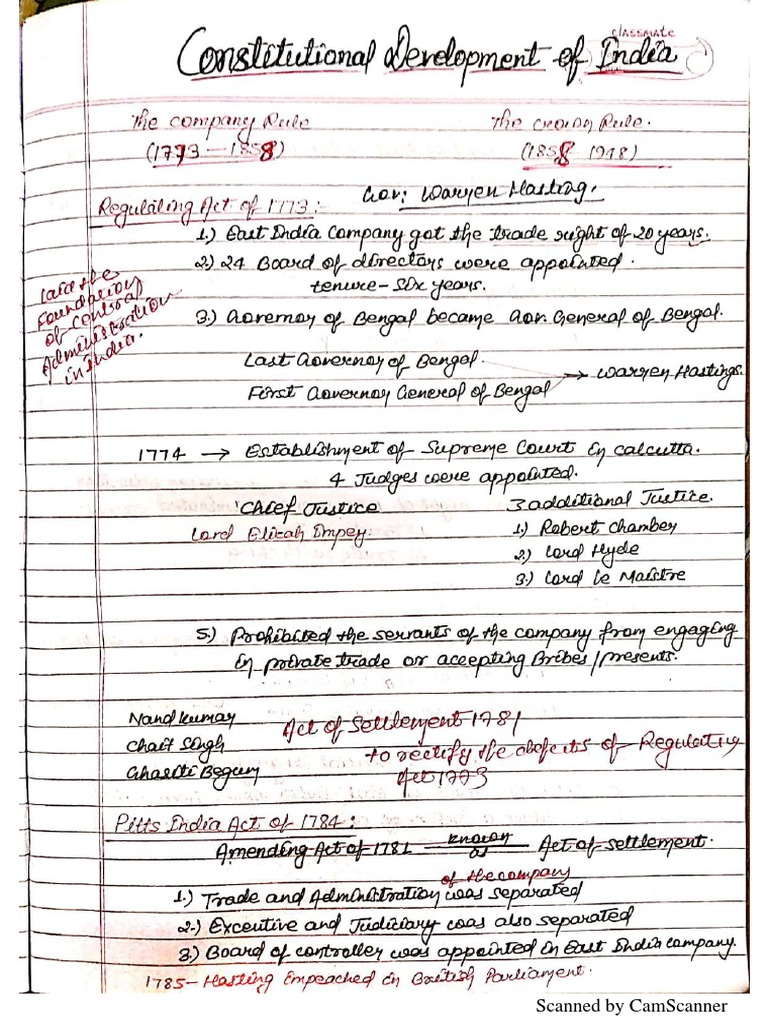 classmate
Constitutional Development of India
The company Rule The crown Rule.
(1773 - 1858) (1858 1948)
Gov: Warren Hasting.
Regulating Act of 1773:-
1.) East India Company got the trade right of 20 years.
2.) 24 Board of directors were appointed.
tenure - six years.
Laid the
foundation
of central
Administration
in India.
3.) Governor of Bengal became Gov. General of Bengal.
Last Governor of Bengal
First Governor General of Bengal → Warren Hastings.
1774 → Establishment of Supreme Court in calcutta.
4 Judges were appointed.
'Chief Justice 3 additional Justice.
Lord Elizah Impey. 1) Robert Chamber
2) Lord Hyde
3.) Lord Le Maistre
5.) Prohibited the servants of the company from engaging
in private trade or accepting Bribes/presents.
Nandkumar
Chait Singh
Ghasiti Begum
Act of Settlement 1781
to rectify the defects of Regulating
Act 1773
Pitts India Act of 1784:
Amending Act of 1781 known as Act of settlement.
of the company
1.) Trade and Administration was separated
2.) Excentive and Judiciary was also separated
3.) Board of controller was appointed in East India company.
1785 - Hasting Impeached in British Parliament.
Scanned by CamScanner